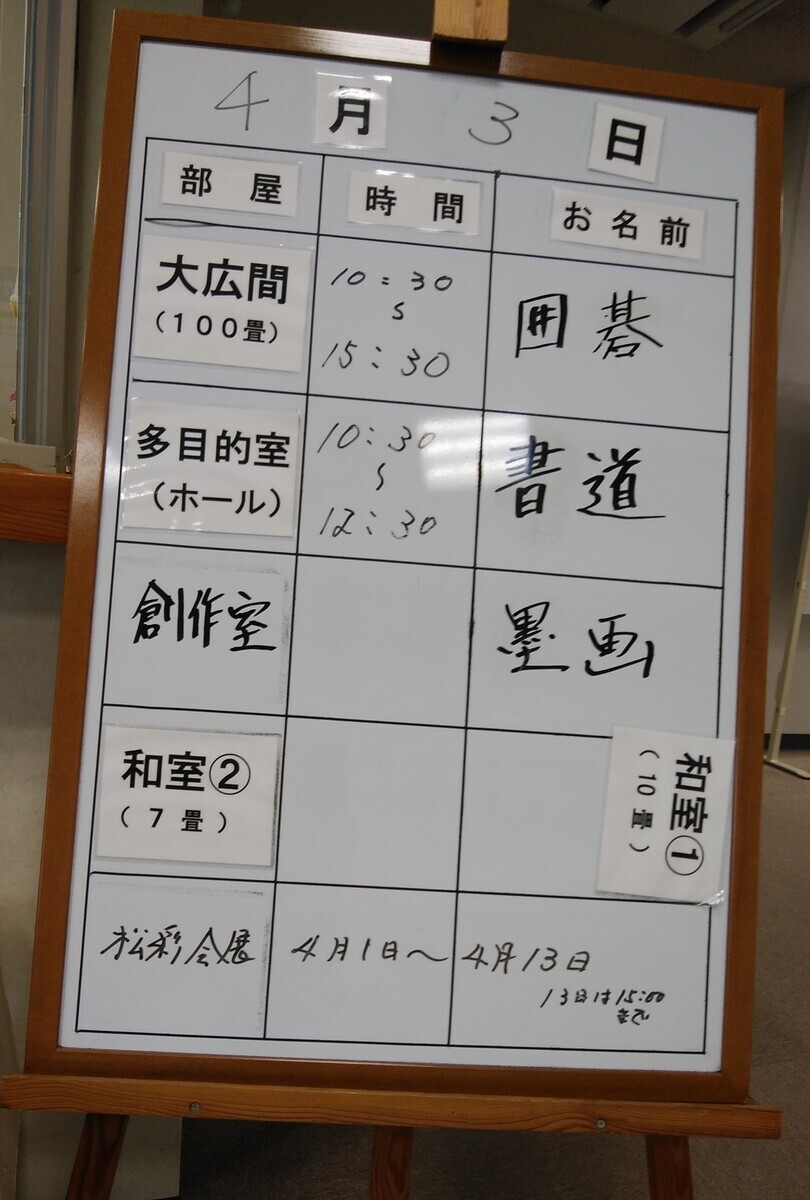 4月3日
部屋 時間 お名前
大広間 10:30 囲碁
(100畳) 〜
15:30
多目的室 10:30 書道
(ホール) 〜
12:30
創作室 墨画
和室②
(7畳)
和室①
(10畳)
松彩会展 4月1日〜4月13日
13日は15:00
まで